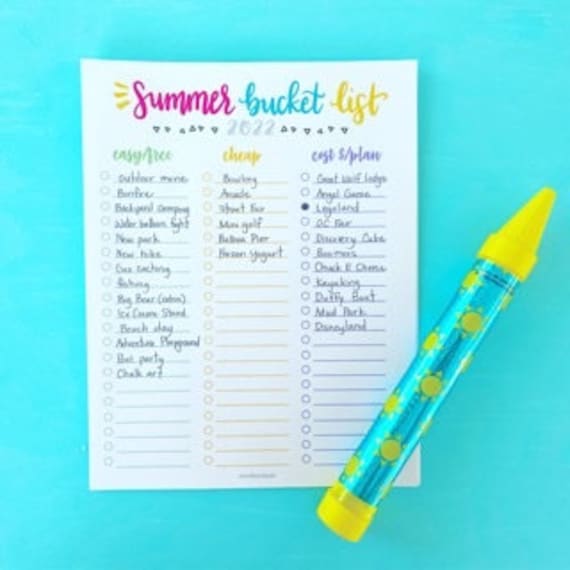 Summer bucket list
2022
easy/free
Outdoor movie
Bonfire
Backyard Camping
Water balloon fight
New park
New hike
Geo caching
fishing
Big Bear (cabin)
Ice Cream Stand
Beach day
Adventure Playground
Pool party
Chalk art
cheap
Bowling
Arcade
Street Fair
Mini golf
Balboa Pier
Frozen Yogurt
cost $/plan
Great Wolf lodge
Angel Game
Legoland
OC Fair
Discovery Cube
Boomers
Chuck E Cheese
Kayaking
Duffy Boat
Mud Park
Disneyland